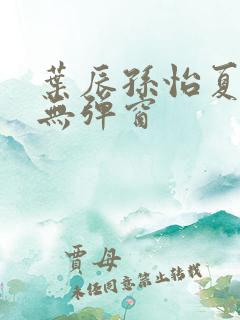 葉辰孫怡夏
無彈窗
賈母
未任同意禁止转载